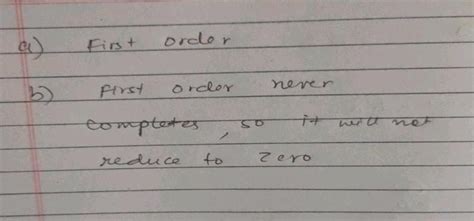 a) First order
b) First order never
completes, so it will not
reduce to zero